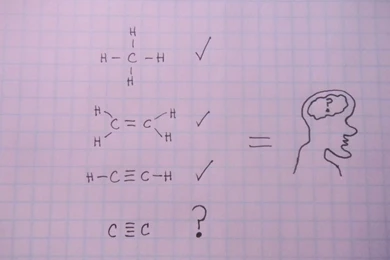 H
H – C – H ✓
H
H H
C = C ✓
H H
?
=
H – C ≡ C – H ✓
C ≣ C ?